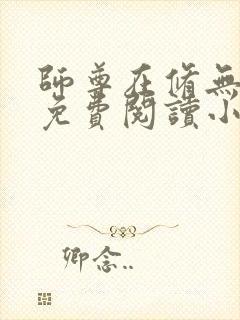 師尊在脩無
免費閱讀小
卿念..